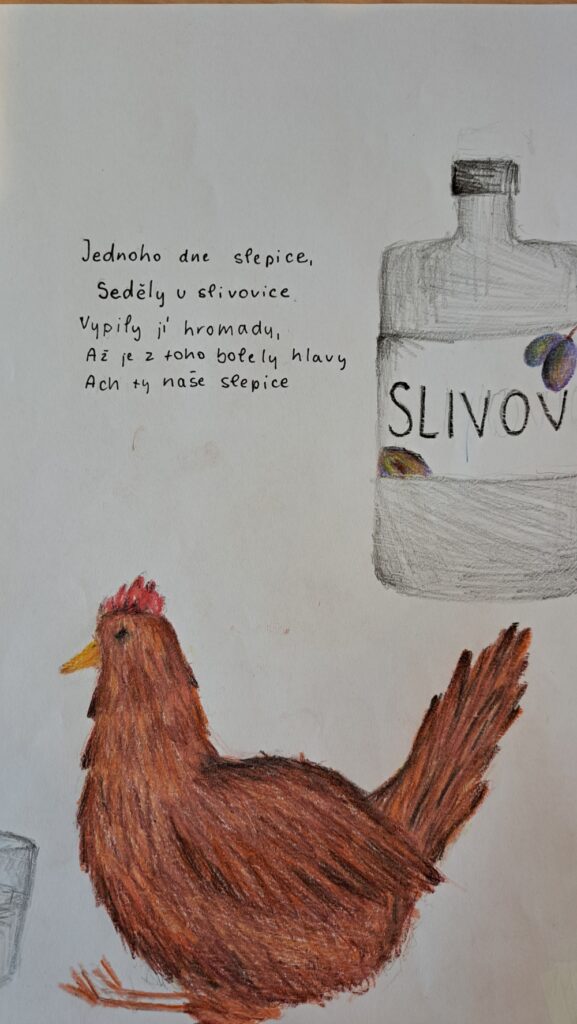 Jednoho dne slepice,
Seděly u slivovice
Vypily jí hromady,
Až je z toho bolely hlavy
Ach ty naše slepice
SLIVOV